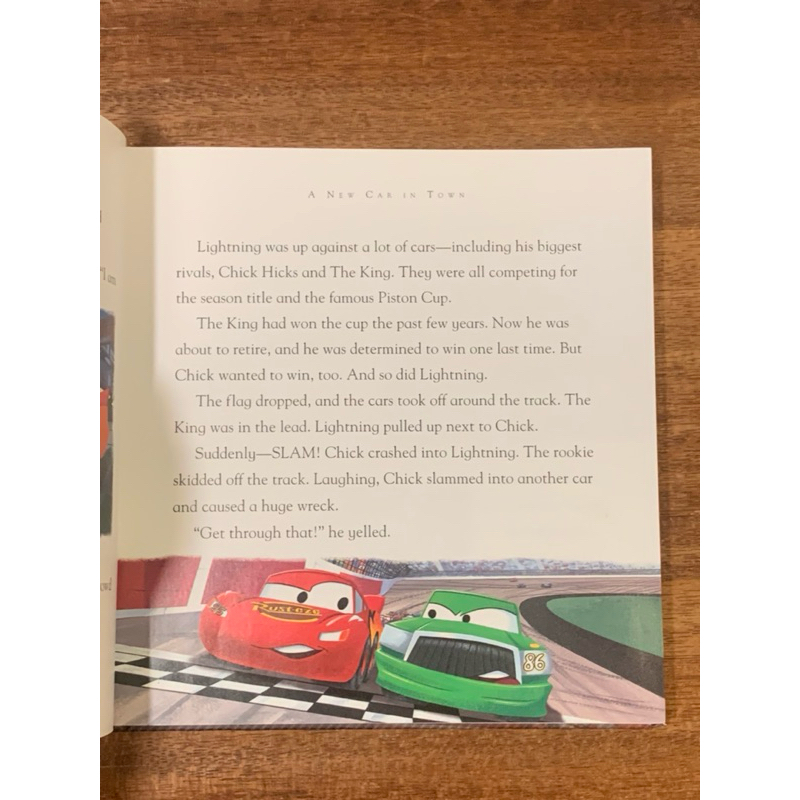 "I am
owd
A New Car in Town
Lightning was up against a lot of cars—including his biggest
rivals, Chick Hicks and The King. They were all competing for
the season title and the famous Piston Cup.
The King had won the cup the past few years. Now he was
about to retire, and he was determined to win one last time. But
Chick wanted to win, too. And so did Lightning.
The flag dropped, and the cars took off around the track. The
King was in the lead. Lightning pulled up next to Chick.
Suddenly—SLAM! Chick crashed into Lightning. The rookie
skidded off the track. Laughing, Chick slammed into another car
and caused a huge wreck.
“Get through that!” he yelled.
Rust-eze
86